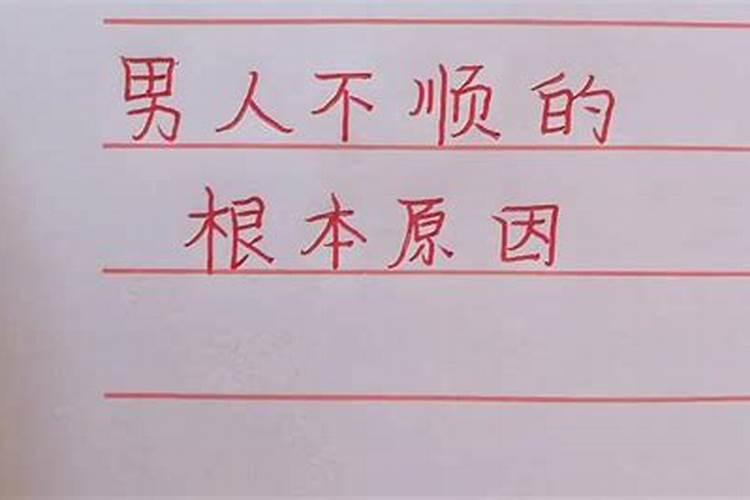 男人不顺的
根本原因